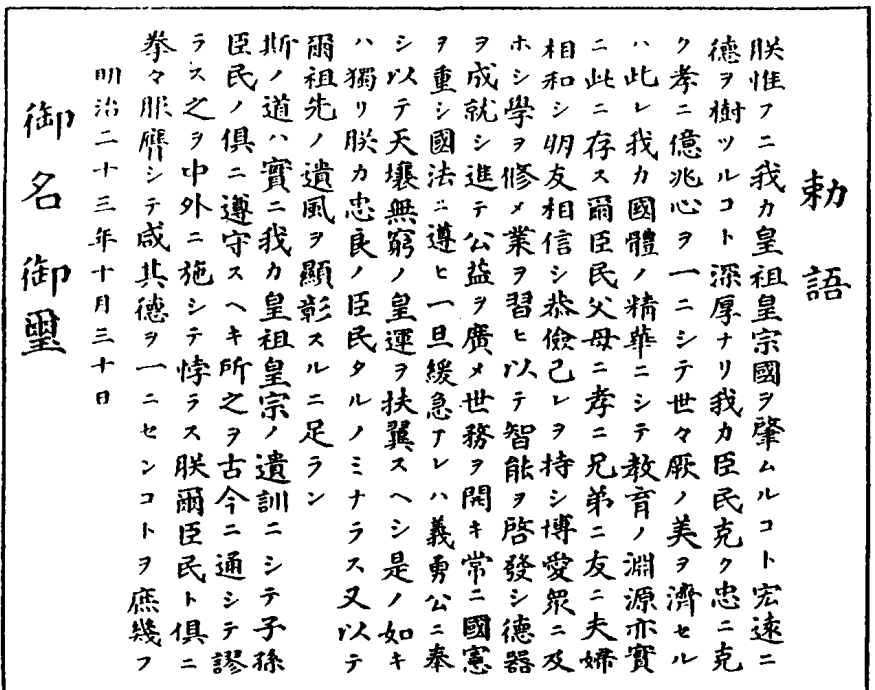 勅語
朕惟フニ我カ皇祖皇宗國ヲ肇ムルコト宏遠ニ
德ヲ樹ツルコト深厚ナリ我カ臣民克ク忠ニ克
ク孝ニ億兆心ヲ一ニシテ世々厥ノ美ヲ濟セル
ハ此レ我カ國體ノ精華ニシテ教育ノ淵源亦實
ニ此ニ存ス爾臣民父母ニ孝ニ兄弟ニ友ニ夫婦
相和シ朋友相信シ恭儉己レヲ持シ博愛眾ニ及
ホシ學ヲ修メ業ヲ習ヒ以テ智能ヲ啓發シ德器
ヲ成就シ進テ公益ヲ廣メ世務ヲ開キ常ニ國憲
ヲ重シ國法ニ遵ヒ一旦緩急アレハ義勇公ニ奉
シ以テ天壤無窮ノ皇運ヲ扶翼スヘシ是ノ如キ
ハ獨リ朕カ忠良ノ臣民タルノミナラス又以テ
爾祖先ノ遺風ヲ顯彰スルニ足ラン
斯ノ道ハ實ニ我カ皇祖皇宗ノ遺訓ニシテ子孫
臣民ノ俱ニ遵守スヘキ所之ヲ古今ニ通シテ謬
ラス之ヲ中外ニ施シテ悖ラス朕爾臣民ト俱ニ
拳々服膺シテ咸其德ヲ一ニセンコトヲ庶幾フ
明治二十三年十月三十日
御名御璽